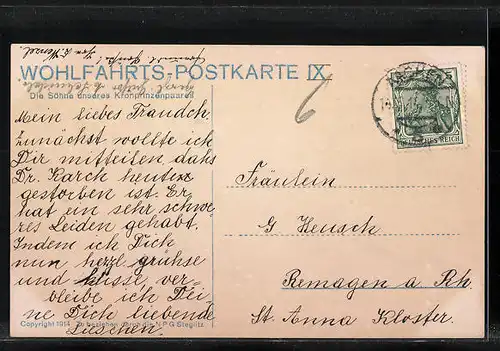 WOHLFAHRTS-POSTKARTE IX
Die Söhne unseres Kronprinzenpaares
Mein liebes Traudch.
Zunächst wollte ich
Dir mitteilen dahs
Dr. Karch heute
gestorben ist. Er
hat un sehr schwe
res Leiden gehabt.
Indem ich Dich
nun herzl grühse
und küsse ver-
bleibe ich Dei
ne Dich liebende
Lieschen.
Copyright 1914. Zu beziehen durch die N P G Steglitz
DEUTSCHES REICH
Fräulein
G Heusch
Remagen a. Rh.
St. Anna Kloster.